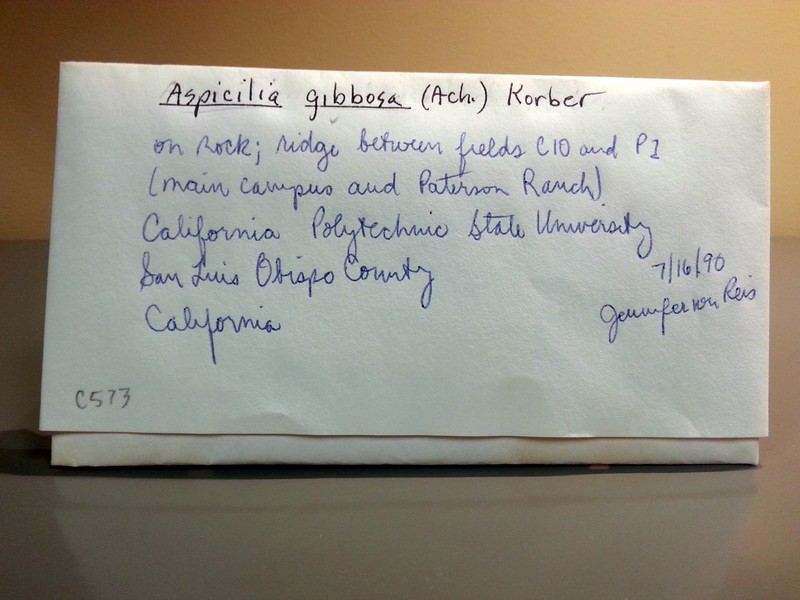 Aspicilia gibbosa (Ach.) Korber
on rock; ridge between fields C10 and P1
(main campus and Paterson Ranch)
California Polytechnic State University
San Luis Obispo County
California
7/16/90
Jennifer von Reis
C573